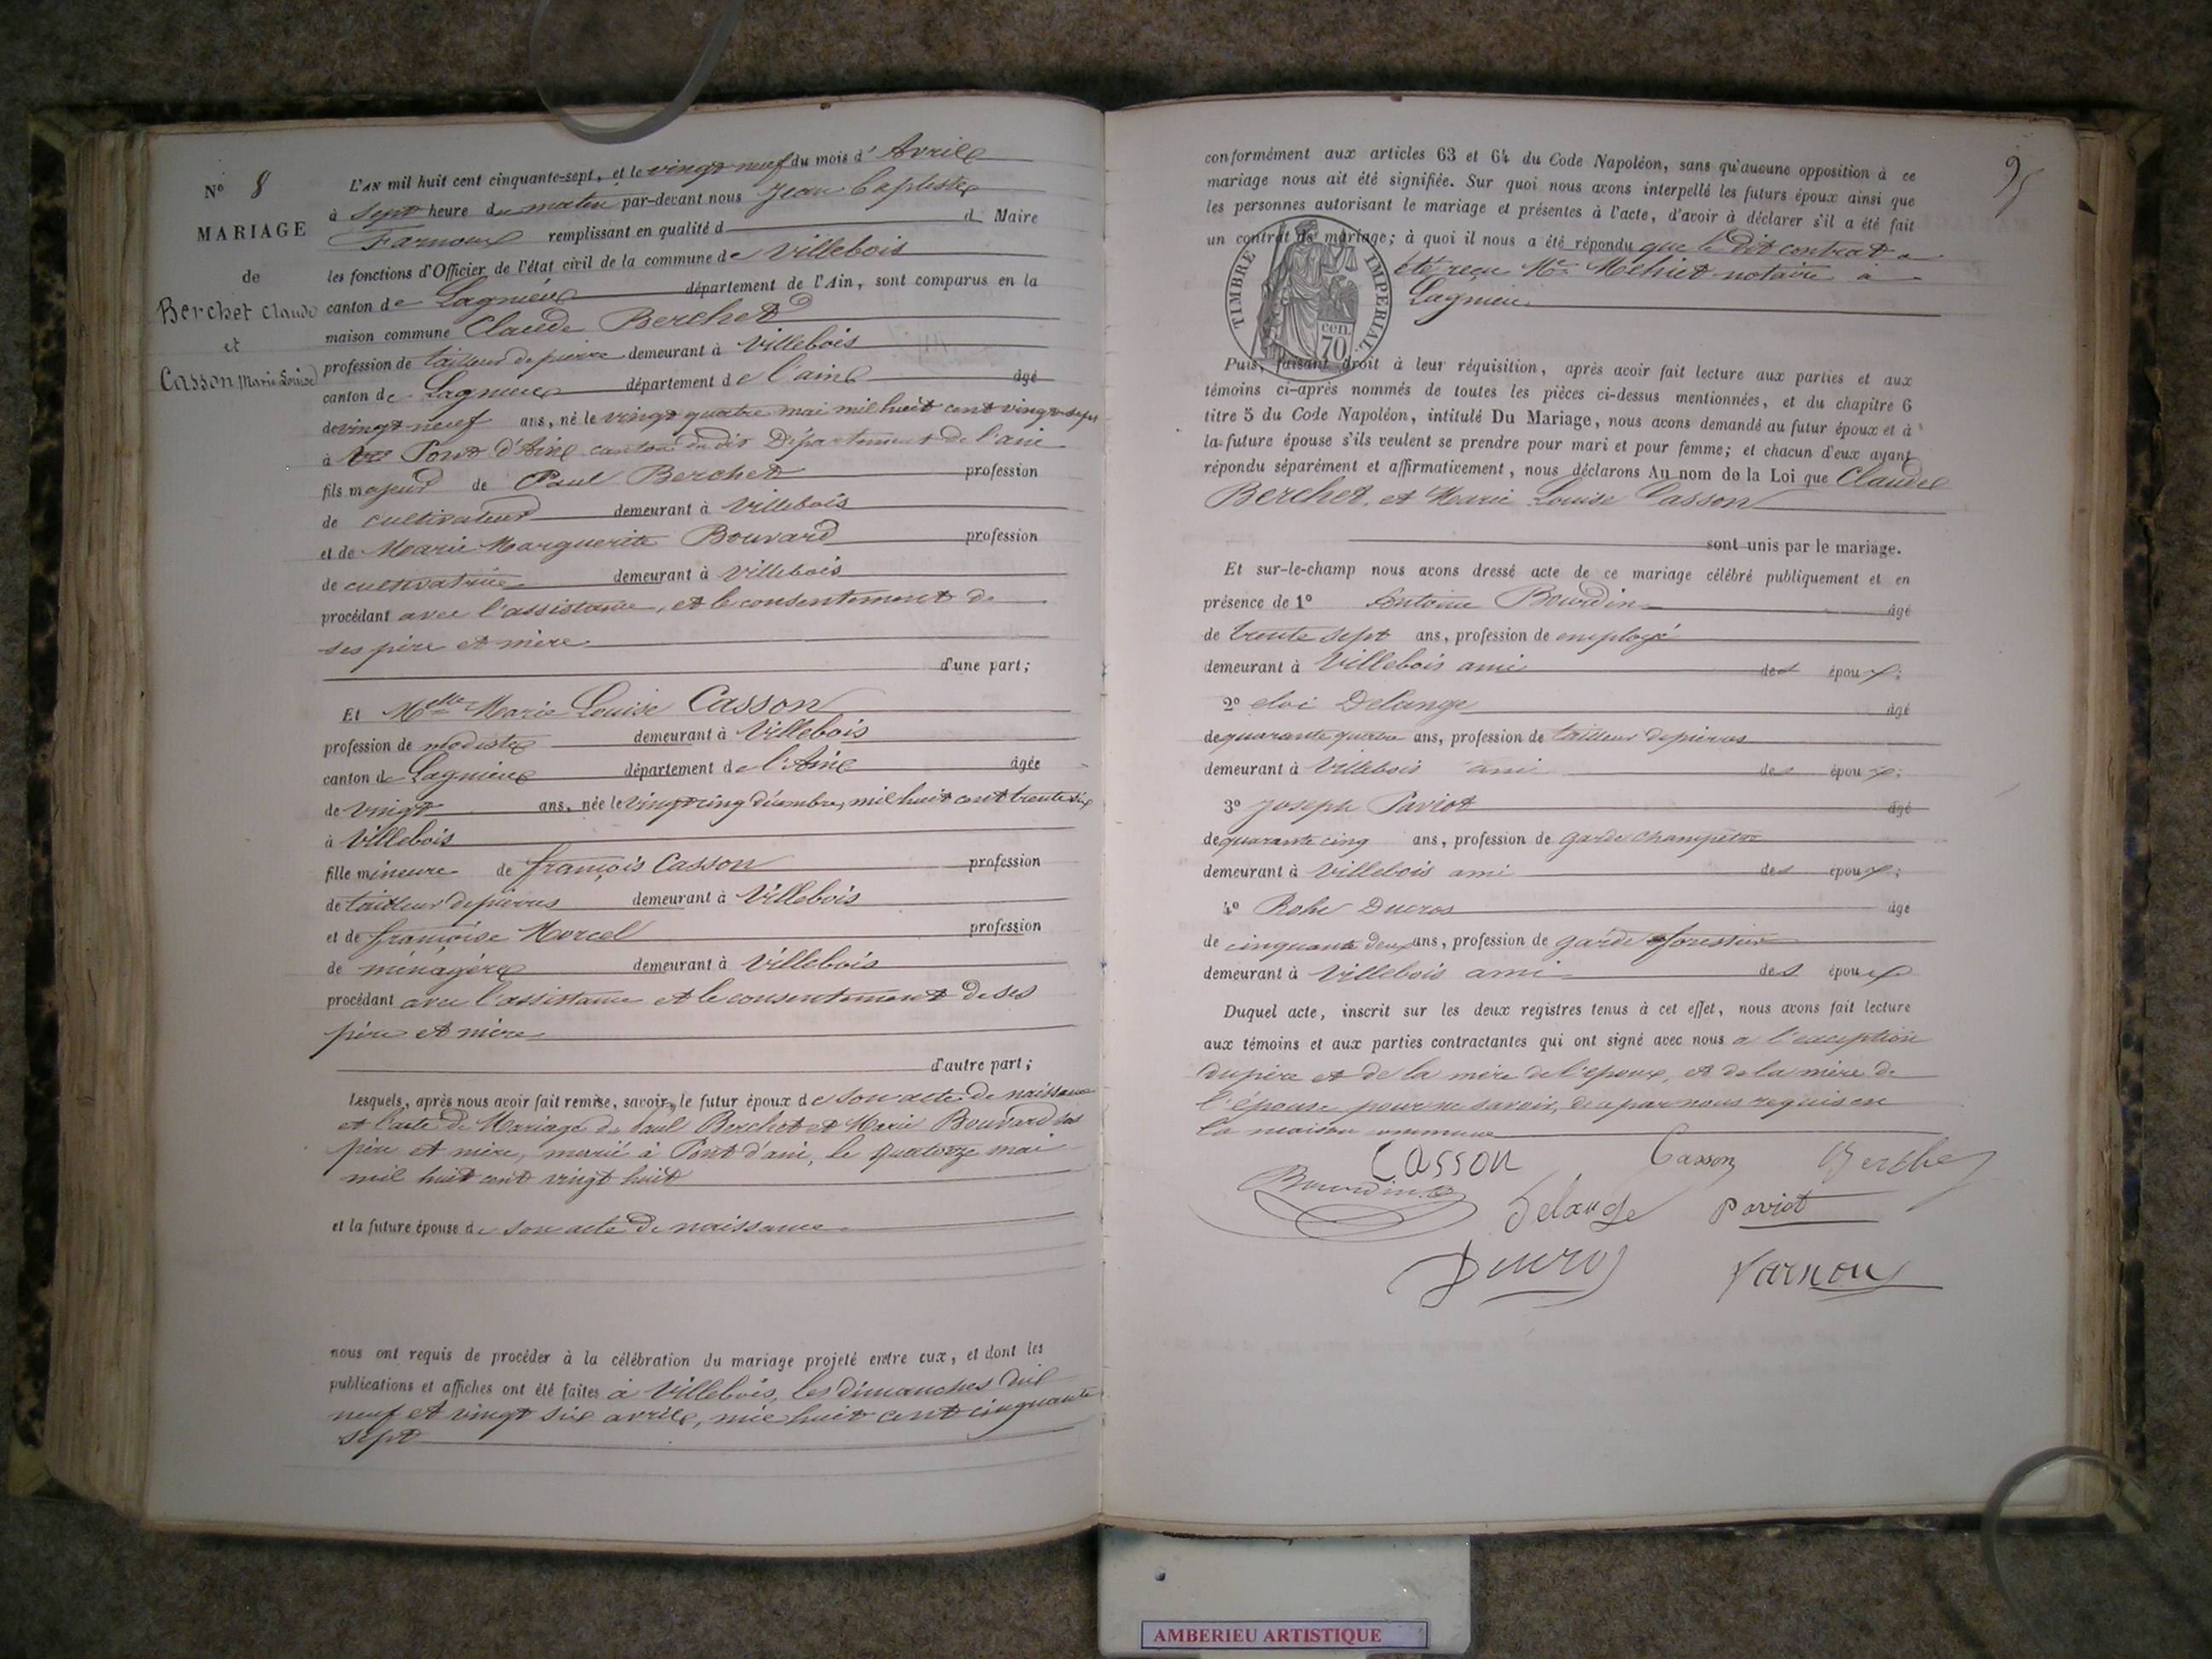 N° 8
MARIAGE
de
Berchet Claude
et
Casson Marie Louise
L'AN mil huit cent cinquante-sept, et le vingt neuf du mois d' Avril
à sept heure du matin par-devant nous Jean Baptiste
Farnoux remplissant en qualité d d Maire
les fonctions d'Officier de l'état civil de la commune de Villebois
canton de Lagnieu département de l'Ain, sont comparus en la
maison commune Claude Berchet
profession de tailleur de pierre demeurant à Villebois
canton de Lagnieu département de l'ain âgé
de vingt-neuf ans, né le vingt quatre mai mil huit cent vingt-sept
à Pont d'Ain canton du dit Département de l'ain
fils majeur de Paul Berchet profession
de cultivateur demeurant à Villebois
et de Marie Marguerite Bouvard profession
de cultivatrice demeurant à Villebois
procédant avec l'assistance, et le consentement de
ses père et mère
d'une part;
Et Melle Marie Louise Casson
profession de modiste demeurant à Villebois
canton de Lagnieu département de l'Ain âgée
de vingt ans, née le vingt cinq décembre, mil huit cent trente six
à Villebois
fille mineure de françois Casson profession
de tailleur de pierres demeurant à Villebois
et de françoise Morcel profession
de ménagère demeurant à Villebois
procédant avec l'assistance et le consentement de ses
père et mère
d'autre part;
Lesquels, après nous avoir fait remise, savoir, le futur époux de son acte de naissance
et l'acte de Mariage de Paul Berchet et Marie Bouvard ses
père et mère, marié à Pont d'ain, le quatorze mai
mil huit cent vingt huit
et la future épouse de son acte de naissance
nous ont requis de procéder à la célébration du mariage projeté entre eux, et dont les
publications et affiches ont été faites à Villebois, les dimanches dix
neuf et vingt six avril, mil huit cent cinquante
sept
95
conformément aux articles 63 et 64 du Code Napoléon, sans qu'aucune opposition à ce
mariage nous ait été signifiée. Sur quoi nous avons interpellé les futurs époux ainsi que
les personnes autorisant le mariage et présentes à l'acte, d'avoir à déclarer s'il a été fait
un contrat de mariage; à quoi il nous a été répondu que le dit contrat a
été reçu Me Mehier notaire à
Lagnieu
TIMBRE IMPERIAL
70 cen.
Puis, faisant droit à leur réquisition, après avoir fait lecture aux parties et aux
témoins ci-après nommés de toutes les pièces ci-dessus mentionnées, et du chapitre 6
titre 5 du Code Napoléon, intitulé Du Mariage, nous avons demandé au futur époux et à
la future épouse s'ils veulent se prendre pour mari et pour femme; et chacun d'eux ayant
répondu séparément et affirmativement, nous déclarons Au nom de la Loi que Claude
Berchet, et Marie Louise Casson
sont unis par le mariage.
Et sur-le-champ nous avons dressé acte de ce mariage célébré publiquement et en
présence de 1° Antoine Bourdin âgé
de trente sept ans, profession de employé
demeurant à Villebois ami des époux;
2° eloi Delange âgé
de quarante quatre ans, profession de tailleur de pierres
demeurant à Villebois ami des époux;
3° Joseph Paviot âgé
de quarante cinq ans, profession de garde champêtre
demeurant à Villebois ami des époux;
4° Ducros âgé
de cinquante deux ans, profession de garde forestier
demeurant à Villebois ami des époux
Duquel acte, inscrit sur les deux registres tenus à cet effet, nous avons fait lecture
aux témoins et aux parties contractantes qui ont signé avec nous a l'exception
du père et de la mère de l'époux, et de la mère de
l'épouse pour ne savoir, de ce par nous requis en
la maison commune
Casson Casson Berchet
Bourdin Delange Paviot
Ducros Farnoux
AMBERIEU ARTISTIQUE